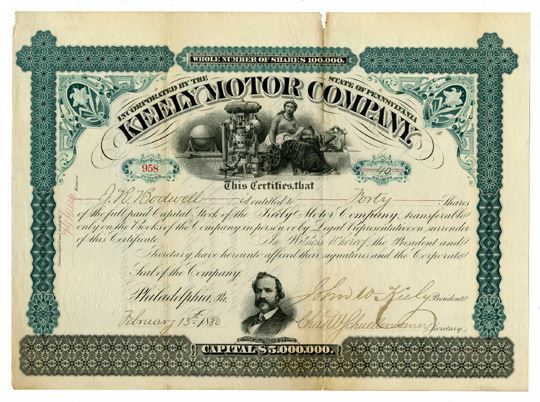 WHOLE NUMBER OF SHARES 100,000.
INCORPORATED BY THE STATE OF PENNSYLVANIA
KEELY MOTOR COMPANY.
958
40
This Certifies, that
J. H. Bodwell is entitled to Forty Shares
of the full paid Capital Stock of the Keely Motor Company, transferable
only on the Books of the Company in person or by Legal Representative on surrender
of this Certificate. In Witness Whereof, the President and
Secretary have hereunto affixed their signatures and the Corporate
Seal of the Company.
Philadelphia, Pa.
February 13th 1880
John W. Keely President
Chas. Secretary
CAPITAL $5,000,000.